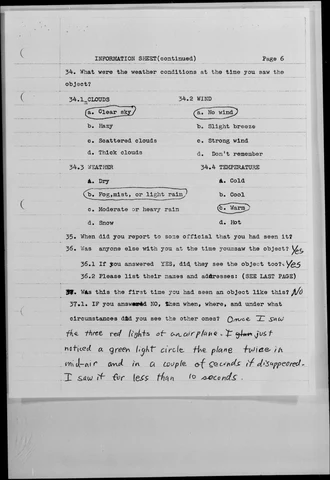 INFORMATION SHEET(continued) Page 6
34. What were the weather conditions at the time you saw the
object?
34.1 CLOUDS 34.2 WIND
a. Clear sky a. No wind
b. Hazy b. Slight breeze
c. Scattered clouds c. Strong wind
d. Thick clouds d. Don't remember
34.3 WEATHER 34.4 TEMPERATURE
a. Dry a. Cold
b. Fog,mist, or light rain b. Cool
c. Moderate or heavy rain c. Warm
d. Snow d. Hot
35. When did you report to some official that you had seen it?
36. Was anyone else with you at the time yousaw the object? Yes
36.1 If you answered YES, did they see the object too? Yes
36.2 Please list their names and addresses: (SEE LAST PAGE)
37. Was this the first time you had seen an object like this? NO
37.1. IF you answered NO, then when, where, and under what
circumstances did you see the other ones? Once I saw
the three red lights of an airplane. I just
noticed a green light circle the plane twice in
mid-air and in a couple of seconds it disappeared.
I saw it for less than 10 seconds.